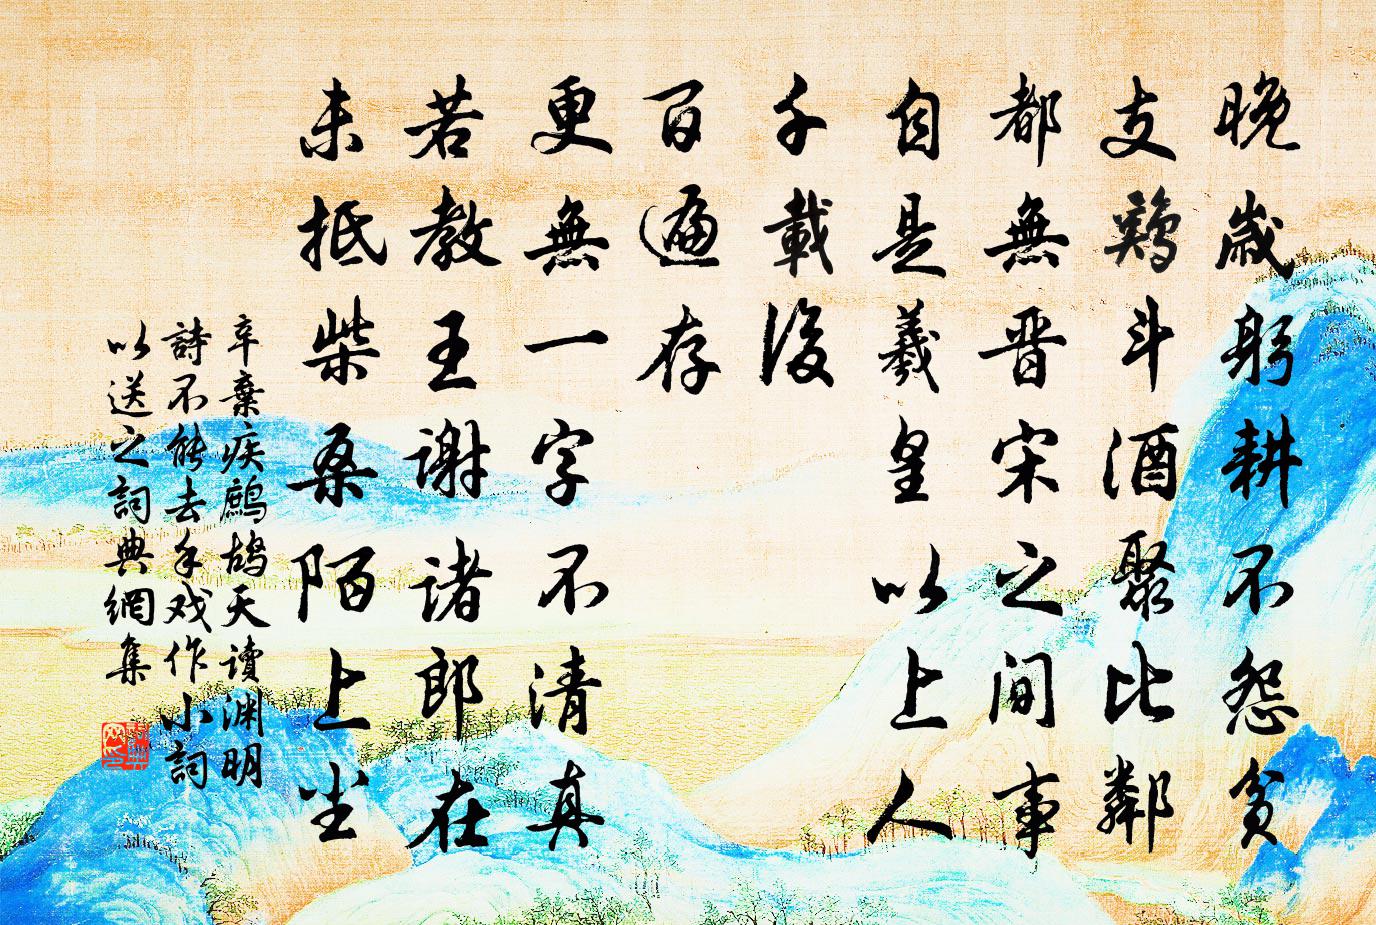 晚歳躬耕不怨貧
支鷄斗酒聚比鄰
都無晋宋之间事
自是羲皇以上人
千載後
百遍存
更無一字不清真
若教王谢诸郎在
未抵柴桑陌上尘
辛棄疾鷓鸪天讀渊明
詩不能去手戏作小詞
以送之詞典網集